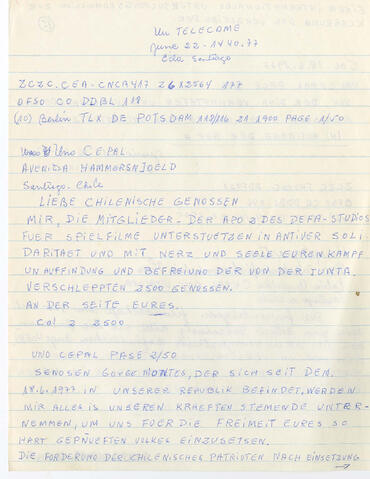 Un TELECOME
june 22 - 1440.77
Cda Santiago
ZCZC.CEA-CNCA417 Z612564 177
DFSO CO DDBL 118
(10) Berlin TLX DE POTSDAM 118/116 21 1900 PAGE 1/50
Uno CEPAL
AVENIDA HAMMERSNJOELD
Santiago. Chile
LIEBE CHILENISCHE GENOSSEN
MIR, DIE MITGLIEDER. DER APO 2 DES DEFA-STUDIOS
FUER SPIELFILME UNTERSTUETZEN IN ANTIVER SOLI
DARITAET UND MIT NERZ UND SEELE EUREN KAMPF
UN AUFFINDUNG UND BEFREIUNG DER VON DER JUNTA.
VERSCHLEPPTEN 2500 GENOSSEN.
AN DER SEITE EURES.
Col 2 - 2500
UNO CEPAL PASE 2/50
SENOSEN MONTES, DER SICH SEIT DEM.
18.6.1977 IN UNSERER REPUBLIK BEFINDET, WERDEN
MIR ALLES IS UNSEREN KRAEFTEN STEMENDE UNTER-
NEMMEN, UM UNS FUER DIE FREIMEIT EURES SO
HART GEPRUEFTEN VOLKES EINZUSETSEN.
DIE FORDERUNG DER CHILENISCHES PATRIOTEN NACH EINSETZUNG